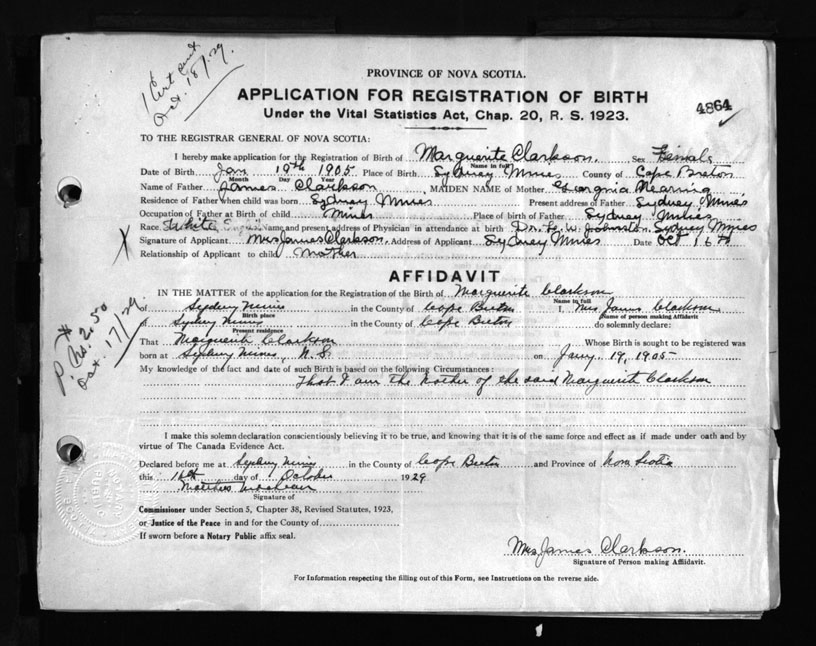 1 Cert sent
Oct. 18/29.
PROVINCE OF NOVA SCOTIA.
APPLICATION FOR REGISTRATION OF BIRTH
Under the Vital Statistics Act, Chap. 20, R. S. 1923.
4864
TO THE REGISTRAR GENERAL OF NOVA SCOTIA:
I hereby make application for the Registration of Birth of Marguerite Clarkson. Sex Female
Name in full
Date of Birth Jan 19th 1905 Place of Birth Sydney Mines County of Cape Breton
Month Day Year
Name of Father James Clarkson, MAIDEN NAME of Mother Georgina Nearning
Residence of Father when child was born Sydney Mines Present address of Father Sydney Mines
Occupation of Father at Birth of child Miner Place of birth of Father Sydney Mines
Race White Name and present address of Physician in attendance at birth Dr. Johnston, Sydney Mines
X Signature of Applicant Mrs James Clarkson. Address of Applicant Sydney Mines Date Oct 16th
Relationship of Applicant to child Mother
AFFIDAVIT
IN THE MATTER of the application for the Registration of the Birth of Marguerite Clarkson
Name in full
of Sydney Mines in the County of Cape Breton I, Mrs James Clarkson
Birth place
Name of person making Affidavit
of Sydney Mines in the County of Cape Breton do solemnly declare:
Present residence
That Marguerite Clarkson Whose Birth is sought to be registered was
born at Sydney Mines, N. S. on Jany. 19, 1905
My knowledge of the fact and date of such Birth is based on the following Circumstances:
That I am the Mother of the said Marguerite Clarkson
2.50
Oct. 17/29.
I make this solemn declaration conscientiously believing it to be true, and knowing that it is of the same force and effect as if made under oath and by
virtue of The Canada Evidence Act.
Declared before me at Sydney Mines in the County of Cape Breton and Province of Nova Scotia
this 16th day of October 1929
Signature of
Commissioner under Section 5, Chapter 38, Revised Statutes, 1923,
or Justice of the Peace in and for the County of
If sworn before a Notary Public affix seal.
Mrs James Clarkson.
Signature of Person making Affidavit.
For Information respecting the filling out of this Form, see Instructions on the reverse side.